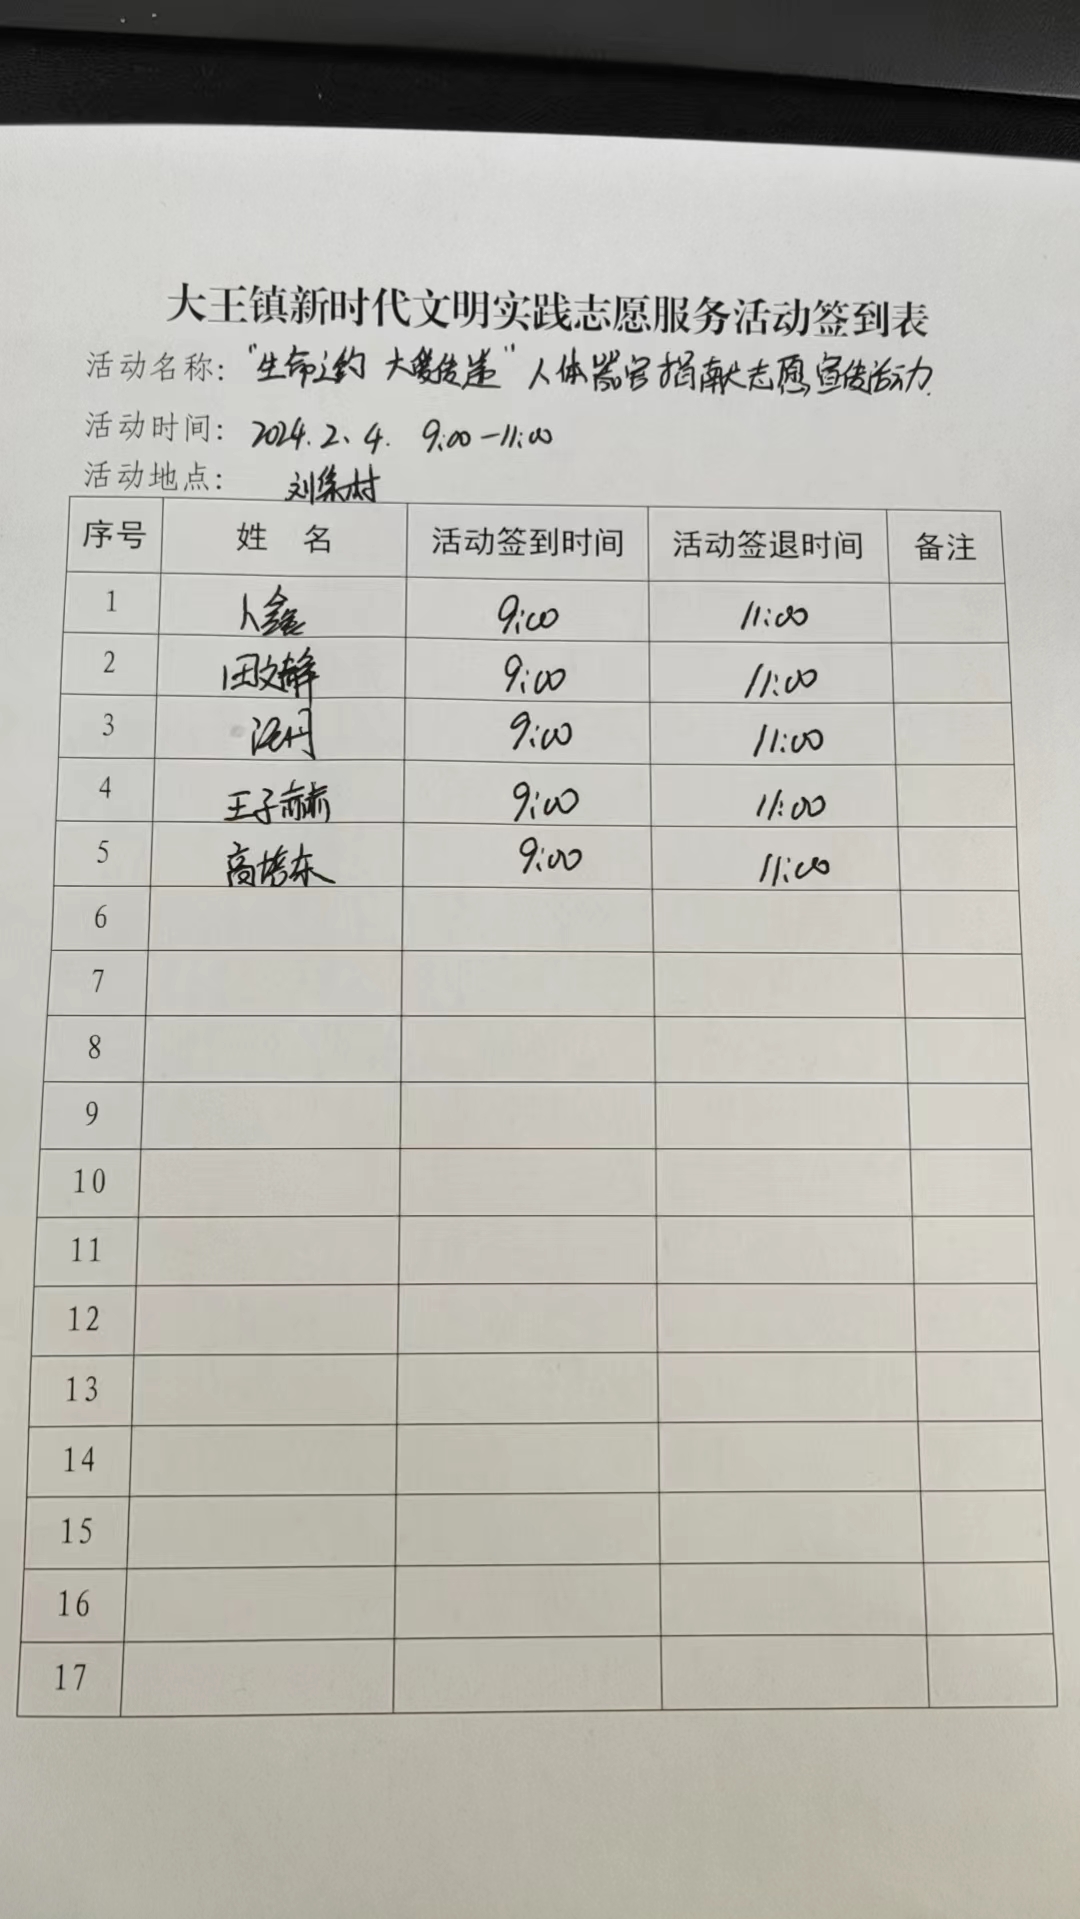 大王镇新时代文明实践志愿服务活动签到表
活动名称：“生命之约 大爱传递”人体器官捐献志愿宣传活动.
活动时间：2024.2.4. 9:00-11:00
活动地点：刘集村
序号 姓 名 活动签到时间 活动签退时间 备注
1 卜鑫 9:00 11:00
2 田文静 9:00 11:00
3 9:00 11:00
4 王子赫 9:00 11:00
5 高培东 9:00 11:00
6
7
8
9
10
11
12
13
14
15
16
17